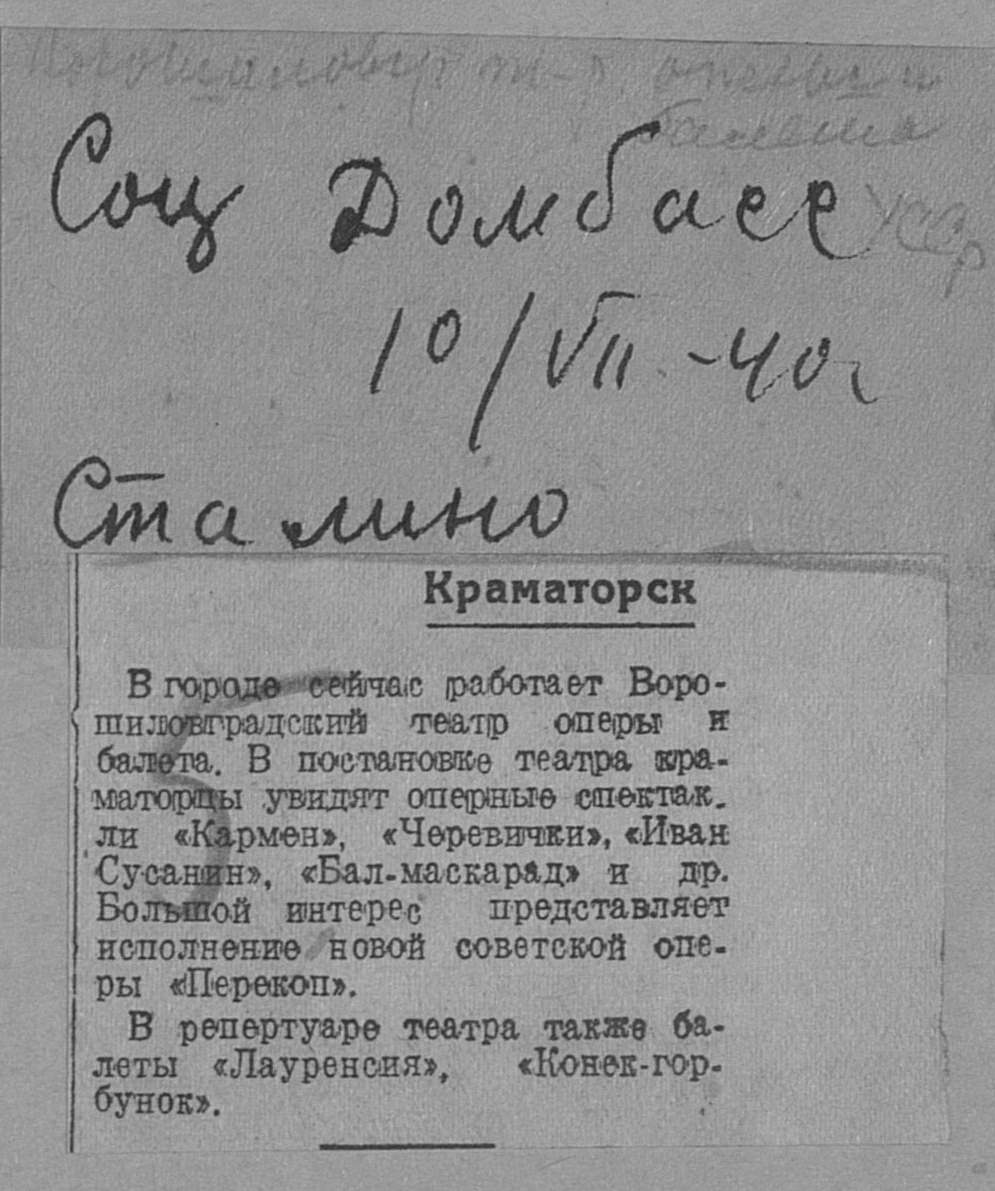 Ворошиловгр т-р оперы и
балета
Соц Домбасс УССР
10/VII -40г
Сталино
Краматорск
В городе сейчас работает Воро-
шиловградский театр оперы и
балета. В постановке театра кра-
маторцы увидят оперные спектак-
ли «Кармен», «Черевички», «Иван
Сусанин», «Бал-маскарад» и др.
Большой интерес представляет
исполнение новой советской опе-
ры «Перекоп».
В репертуаре театра также ба-
леты «Лауренсия», «Конек-гор-
бунок».